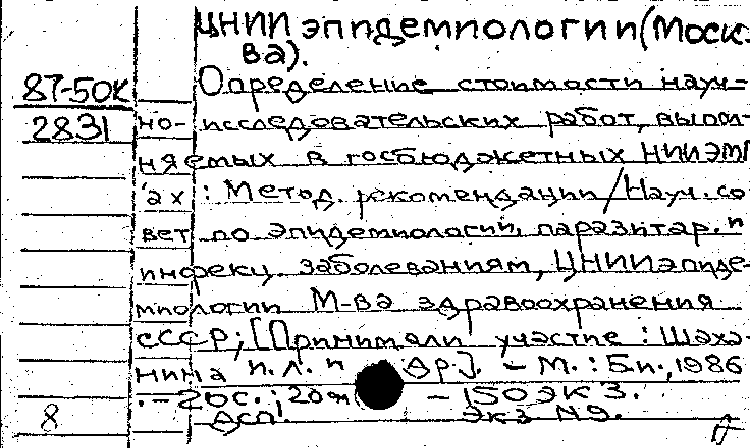 ЦНИИ эпидемиологии (Моск-
ва).
87-50К Определение стоимости науч-
2831 но-исследовательских работ, выпол-
няемых в госбюджетных НИИЭМ
'ах: Метод. рекомендации / Науч. со
вет по эпидемиологии, паразитар. и
инфекц. заболеваниям, ЦНИИ эпиде-
миологии М-ва здравоохранения
СССР; [Принимали участие: Шаха-
нина И.Л. и др.]. – М.: Б.и., 1986
. – 20с.; 20 – 150 экз.
8 Экз №9.